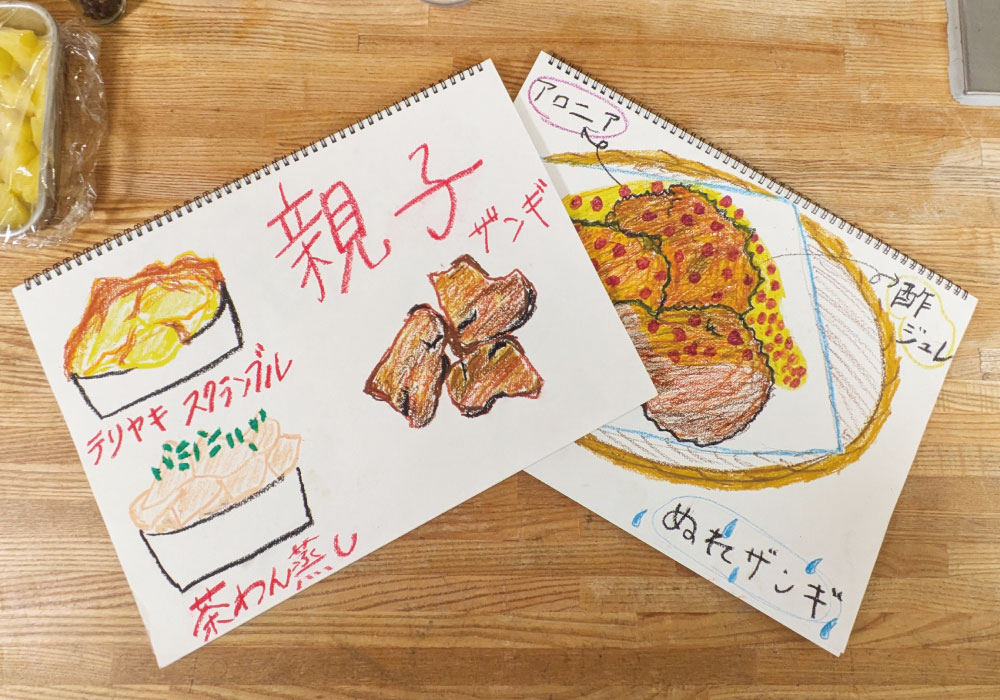 親子
ザンギ
テリヤキ スクランブル
茶わん蒸し
アロニア
酢
ジュレ
ぬれザンギ